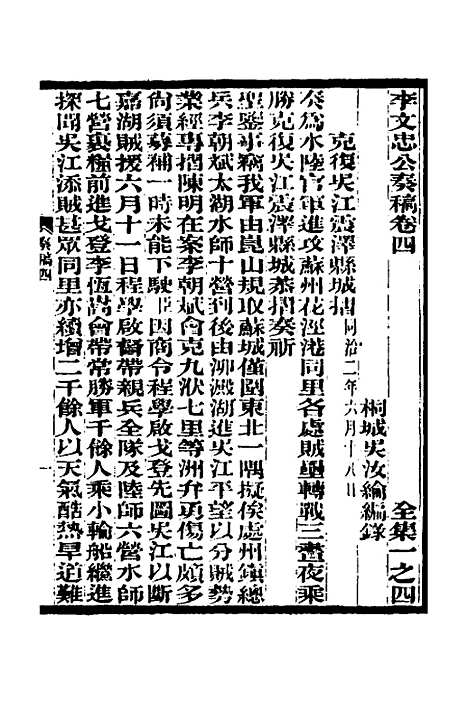 李文忠公奏稿卷四 全集一之四
桐城吳汝綸編錄
克復吳江震澤縣城摺 同治二年六月十八日
奏爲水陸官軍進攻蘇州花涇港同里各處賊壘轉戰三晝夜乘
勝克復吳江震澤縣城恭摺奏祈
聖鑒事竊我軍由崑山規取蘇城僅圍東北一隅擬俟處州鎮總
兵李朝斌太湖水師十營到後由泖澱湖進吳江平望以分賊勢
業經專摺陳明在案李朝斌會克九洑七里等洲弁勇傷亡頗多
尙須募補一時未能下駛臣因商令程學啟戈登先圖吳江以斷
嘉湖賊援六月十一日程學啟督帶親兵全隊及陸師六營水師
七營裹糧前進戈登李恆嵩會帶常勝軍千餘人乘小輪船繼進
探聞吳江添賊甚眾同里亦續增二千餘人以天氣酷熱旱道難
奏稿四 一